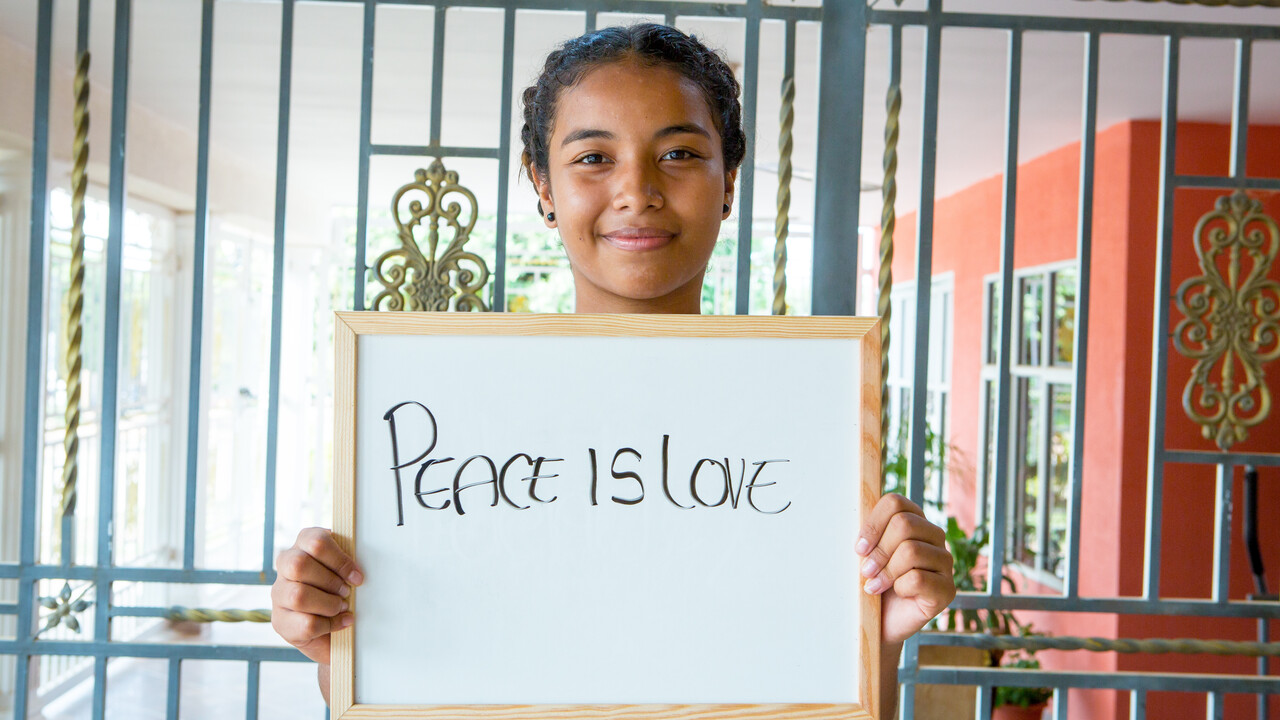 PEACE IS LOVE